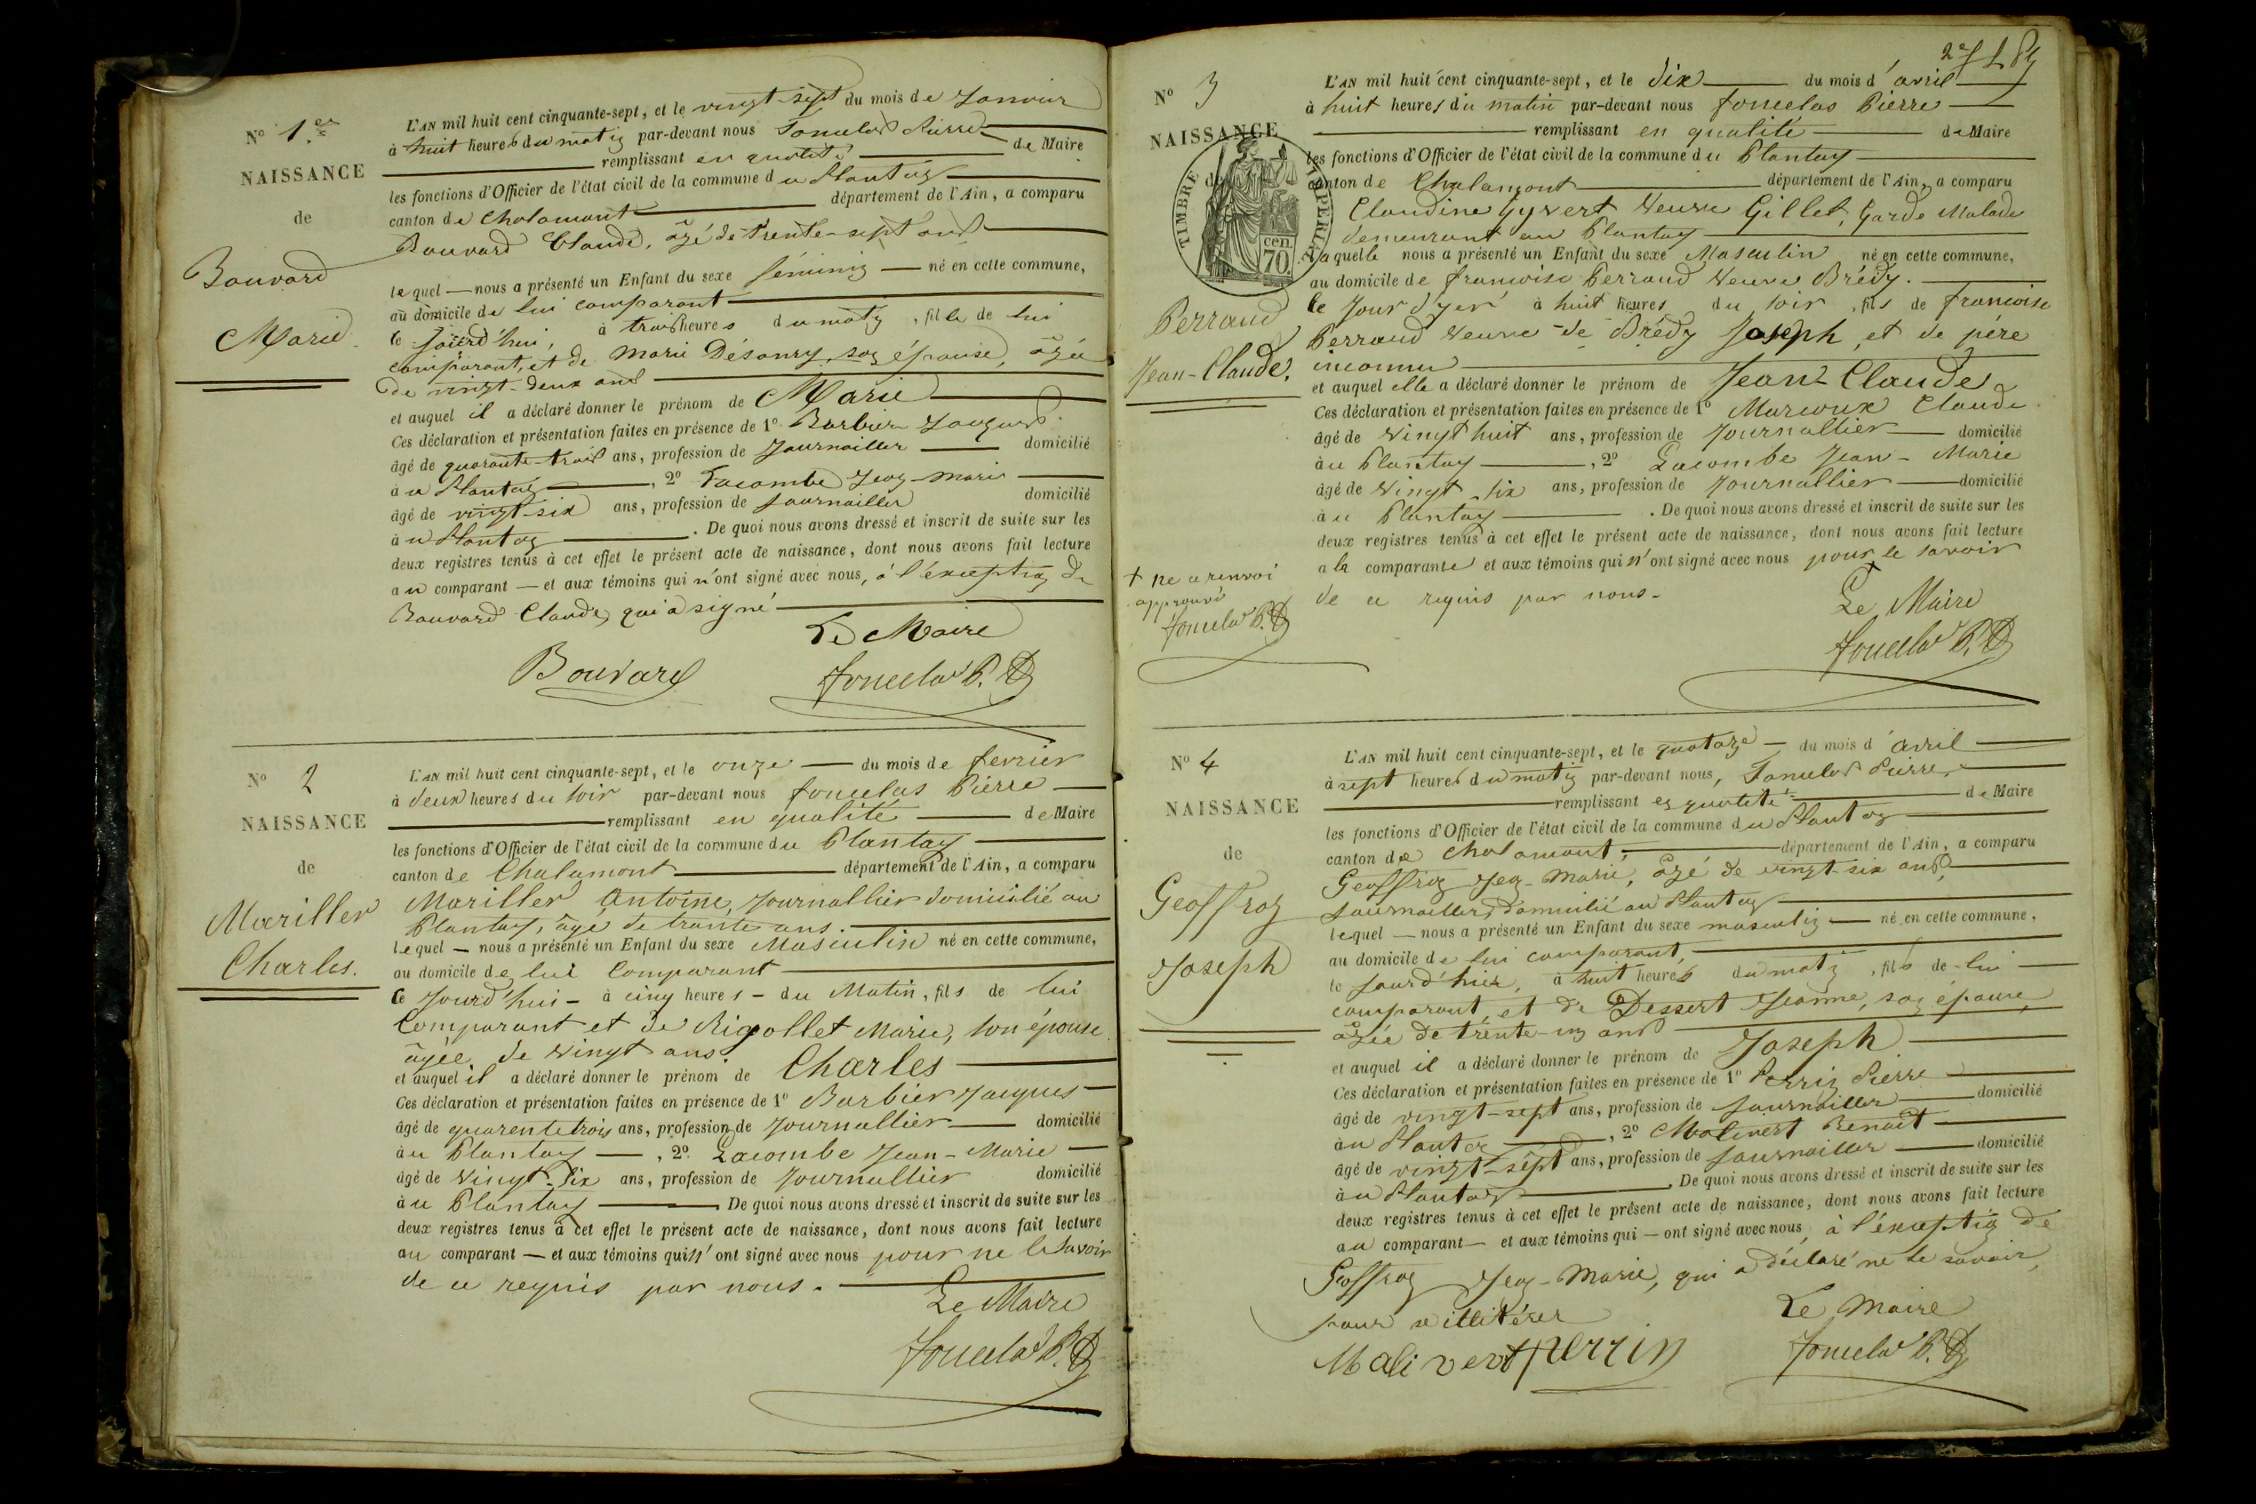 N° 1er
NAISSANCE
de
Bouvard
Marie
L'AN mil huit cent cinquante-sept, et le vingt-sept du mois de Janvier
à huit heures du matin par-devant nous Fonselas Pierre
remplissant en qualité de Maire
les fonctions d'Officier de l'état civil de la commune du Plantay
canton de Chalamont département de l'Ain, a comparu
Bouvard Claude, âgé de trente-sept ans
lequel nous a présenté un Enfant du sexe féminin né en cette commune,
au domicile de lui comparant
le jourd'hui, à trois heures du matin, fille de lui
comparant, et de Marie Désanry, son épouse, âgée
de vingt-deux ans
et auquel il a déclaré donner le prénom de Marie
Ces déclaration et présentation faites en présence de 1° Barbier Jacques
âgé de quarante-trois ans, profession de Journailler domicilié
au Plantay, 2° Lacombe Jean-Marie
âgé de vingt-six ans, profession de Journailler domicilié
au Plantay. De quoi nous avons dressé et inscrit de suite sur les
deux registres tenus à cet effet le présent acte de naissance, dont nous avons fait lecture
au comparant et aux témoins qui n'ont signé avec nous, à l'exception de
Bouvard Claude, qui a signé
Le Maire
Bouvard Fonselas P.
N° 2
NAISSANCE
de
Mariller
Charles.
L'AN mil huit cent cinquante-sept, et le onze du mois de fevrier
à deux heures du soir par-devant nous fonselas Pierre
remplissant en qualité de Maire
les fonctions d'Officier de l'état civil de la commune du Plantay
canton de Chalamont département de l'Ain, a comparu
Mariller Antoine, Journallier domicilié au
Plantay, âgé de trante ans.
Lequel nous a présenté un Enfant du sexe Masculin né en cette commune,
au domicile de lui Comparant
Ce Jourd'hui à cinq heures du Matin, fils de lui
Comparant et de Rigollet Marie, son épouse
âgée de vingt ans.
et auquel il a déclaré donner le prénom de Charles
Ces déclaration et présentation faites en présence de 1° Barbier Jacques
âgé de quarente trois ans, profession de Journallier domicilié
au Plantay, 2° Lacombe Jean-Marie
âgé de Vingt-six ans, profession de Journallier domicilié
au Plantay De quoi nous avons dressé et inscrit de suite sur les
deux registres tenus à cet effet le présent acte de naissance, dont nous avons fait lecture
au comparant et aux témoins qui n'ont signé avec nous pour ne le savoir
de ce requis par nous.
Le Maire
fonselas P.
N° 3
NAISSANCE
de
TIMBRE IMPERIAL
cen. 70
Perraud
Jean-Claude.
L'AN mil huit cent cinquante-sept, et le dix du mois d'avril
à huit heures du matin par-devant nous fonselas Pierre
remplissant en qualité de Maire
les fonctions d'Officier de l'état civil de la commune du Plantay
canton de Chalamont département de l'Ain, a comparu
Claudine Gyvert Veuve Gillet, Garde Malade
demeurant au Plantay
Laquelle nous a présenté un Enfant du sexe Masculin né en cette commune,
au domicile de francoise Perraud Veuve Brédy.
le Jour d'yer à huit heures du soir, fils de francoise
Perraud Veuve de Brédy Joseph, et de père
inconnu
et auquel elle a déclaré donner le prénom de Jean-Claude
Ces déclaration et présentation faites en présence de 1° Marioux Claude
âgé de Vingt huit ans, profession de Journallier domicilié
au Plantay, 2° Lacombe Jean-Marie
âgé de Vingt-six ans, profession de Journallier domicilié
au Plantay. De quoi nous avons dressé et inscrit de suite sur les
deux registres tenus à cet effet le présent acte de naissance, dont nous avons fait lecture
a la comparante et aux témoins qui n'ont signé avec nous pour + le savoir
de ce requis par nous.
+ ne a renvoi
approuvé
fonselas P.
Le Maire
fonselas P.
N° 4
NAISSANCE
de
Geoffroy
Joseph
L'AN mil huit cent cinquante-sept, et le quatorze du mois d'avril
à sept heures du matin par-devant nous, Fonselas Pierre,
remplissant en qualité de Maire
les fonctions d'Officier de l'état civil de la commune du Plantay
canton de Chalamont, département de l'Ain, a comparu
Geoffroy Jean-Marie, âgé de vingt-six ans,
Journailler, domicilié au Plantay
lequel nous a présenté un Enfant du sexe masculin né en cette commune,
au domicile de lui comparant,
le jourd'hier, à huit heures du matin, fils de lui
comparant, et de Dessert Jeanne, son épouse,
âgée de trente-un ans
et auquel il a déclaré donner le prénom de Joseph
Ces déclaration et présentation faites en présence de 1° Perrin Pierre
âgé de vingt-sept ans, profession de Journailler domicilié
au Plantay, 2° Malivert Benoit
âgé de vingt-sept ans, profession de Journailler domicilié
au Plantay. De quoi nous avons dressé et inscrit de suite sur les
deux registres tenus à cet effet le présent acte de naissance, dont nous avons fait lecture
au comparant et aux témoins qui ont signé avec nous, à l'exception de
Geoffroy Jean-Marie, qui a déclaré ne le savoir,
pour illitérer
Le Maire
Malivert perrin fonselas P.